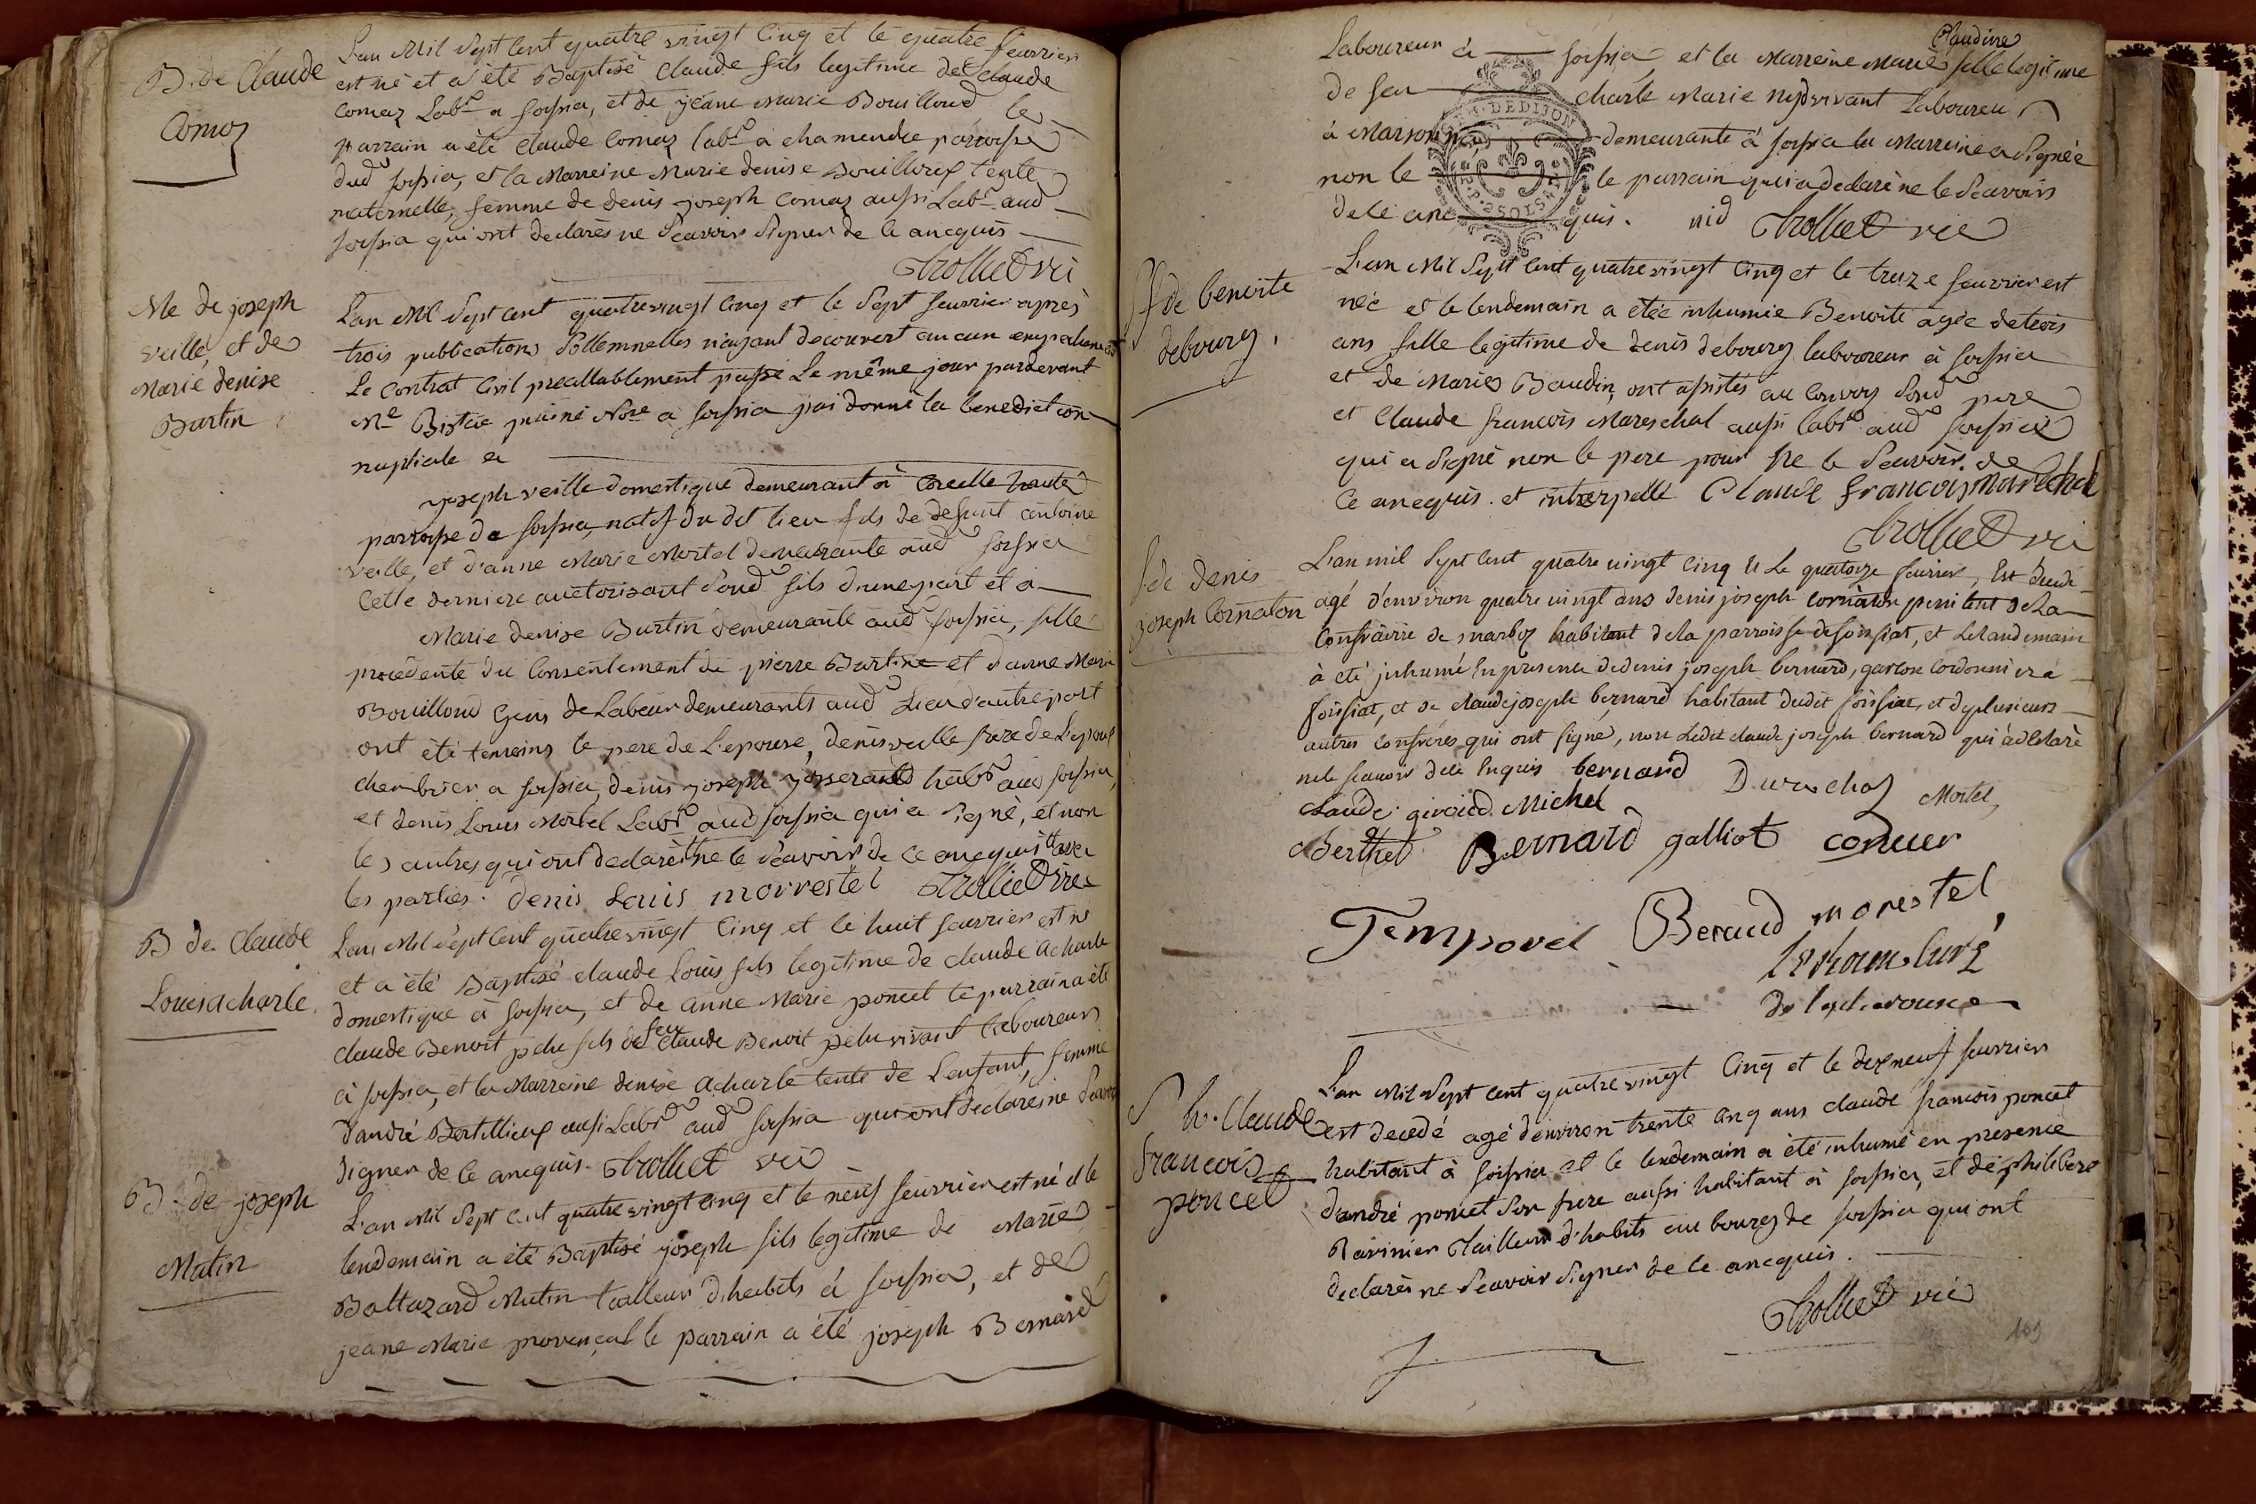 B. de Claude
Comaz
L'an Mil Sept Cent quatre vingt Cinq et le quatre feuvrier
est né et a été Baptisé Claude fils legitime de Claude
Comaz Labr a foissia, et de jeane Marie Bouilloud le
parrain a été Claude Comaz labr a chamendre parroisse
dud foissia, et la Marreine Marie denise Bouilloux tente
maternelle, femme de denis joseph Comaz aussi Labr aud
foissia qui ont declarés ne Scavoir Signer de ce ancquis
Trolliet vic
Me de joseph
veille, et de
Marie denise
Burtin
L'an Mil Sept Cent quatre vingt Cinq et le Sept feuvrier après
trois publications Sollemnelles n'ayant decouvert aucun empechement
Le Contrat Civil preallablement passé Le même jour pardevant
Me puiné Nore a foissia j'ai donné la benediction
nuptiale a
joseph veille domestique demeurant à Corcelle haute
parroisse de foissia, natif du dit lieu fils de defunt antoine
veille, et d'anne Marie Mortel demeurante aud foissia
Cette derniere auctorisant Soud fils d'une part et a
Marie denise Burtin demeurante aud foissia, fille
procedente du Consentement de pierre Burtin et d'anne Marie
Bouilloud Gens de Labeur demeurants aud Lieu d'autre part
ont été temoins le pere de L'epouse, denis veille frere de L'epoux
chambrier a foissia, denis joseph josserand habt aud foissia,
et denis Louis Mortel Labr aud foissia qui a Signé, et non
les autres qui ont declarés ne le Scavoir de ce ancquis avec
les parties. denis Louis morrestel Trolliet vic
B de Claude
Louis acharle
L'an Mil Sept Cent quatre vingt Cinq et le huit feuvrier est né
et a été Baptisé claude Louis fils legitime de claude acharle
domestique à foissia, et de anne Marie poncet le parrain a été
claude Benoit pelu fils de feu claude Benoit pelu vivant laboureur
à foissia, et la Marreine denise acharle tente de L'enfant, femme
d'andré Bertillieux aussi Labr aud foissia qui ont declarés ne Scavoir
Signer de ce ancquis. Trolliet vic
B. de joseph
Mutin
L'an Mil Sept Cent quatre vingt Cinq et le neuf feuvrier est né et le
lendemain a été Baptisé joseph fils legitime de Marie
Baltazard Mutin tailleur d'habits à foissia, et de
jeane Marie provençal le parrain a été joseph Bernard
Claudine
Laboureur à foissia et la Marreine Marie fille legitime
de feu charle Marie nyd vivant Laboureur
à Marsonna, demeurante à foissia la Marreine a Signée
non le le parrain qui a declaré ne le Scavoir
de ce anc quis. nid Trolliet vic
DE DIJON
f de benoite
debourg.
L'an Mil Sept Cent quatre vingt Cinq et le treize feuvrier est
née et le lendemain a étée inhumée Benoite agée de trois
ans fille legitime de denis debourg laboureur à foissia
et de Marie Baudin, ont assistés au Convoy Soud pere
et Claude francois Mareschal aussi labr aud foissia
qui a Signé non le pere pour ne le Scavoir de
Ce ancquis. et interpellé Claude francois marechal
Trolliet vic
S. de denis
joseph Cornaton
L'an mil Sept Cent quatre vingt Cinq et Le quatorze feurier, Est decedé
agé d'environ quatre vingt ans denis joseph Cornaton penitent de La
Confrairie de marboz habitant de la parroisse de foissiat, et Le landemain
à eté jnhumé En presence de denis joseph bernard, garcon Cordonnier a
foissiat, et de claude joseph bernard habitant dudit foissiat, et de plusieurs
autres Confreres qui ont signé, non Ledit claude joseph bernard qui à declaré
ne le scavoir dece Enquis bernard Durochaz
claude giroud Michel Mortel
Berthet Bernard galliot convert
Temporel Beraud morestel
Curé
S h. Claude
francois
poncet
L'an Mil Sept Cent quatre vingt Cinq et le dix neuf feuvrier
est decedé agé d'environ trente Cinq ans claude francois poncet
habitant à foissia et le lendemain a été inhumé en presence
d'andré poncet Son frere aussi habitant à foissia, et de philibert
Ravinier Tailleur d'habits au bourg de foissia qui ont
declarés ne Scavoir Signer de ce ancquis.
Trolliet vic
109